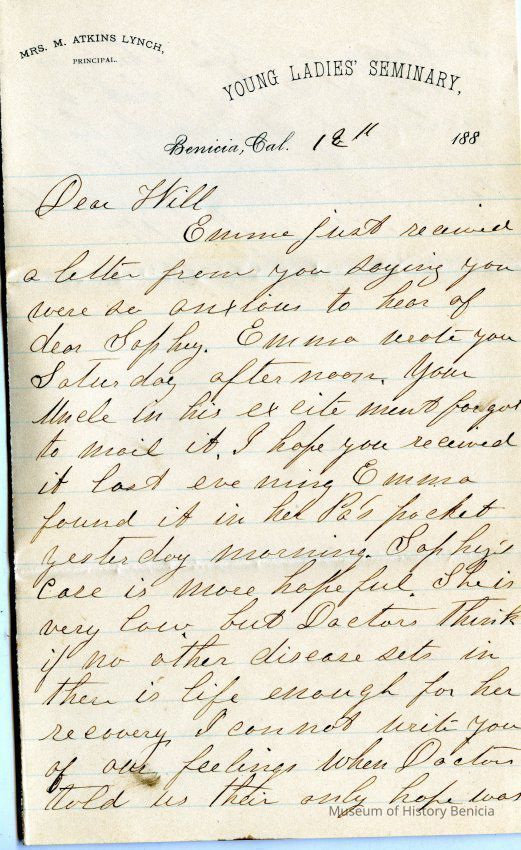 MRS. M. ATKINS LYNCH,
PRINCIPAL.
YOUNG LADIES' SEMINARY,
Benicia, Cal. 188
Dear Will
Emma just received
a letter from you saying you
were so anxious to hear of
dear Sophey. Emma wrote you
Saturday afternoon. Your
Uncle in his excitement forgot
to mail it. I hope you received
it last evening Emma
found it in her Pa's pocket
yesterday morning. Sophey's
case is more hopeful. She is
very low. but Doctors think
if no other disease sets in
there is life enough for her
recovery, I cannot write you
of our feelings when Doctors
told us their only hope was
Museum of History Benicia